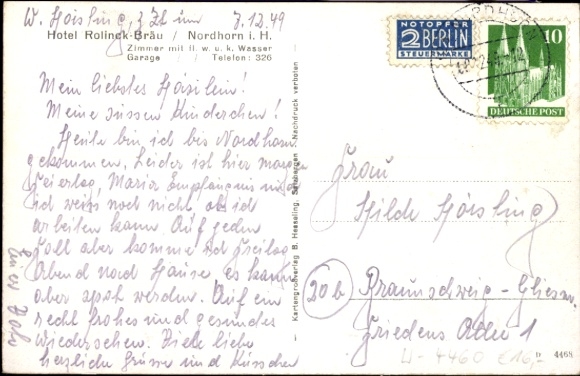 W. Hoisling, z Zt um 7.12.49
Hotel Rolinck-Bräu / Nordhorn i. H.
Zimmer mit fl. w. u. k. Wasser
Garage / Telefon: 326
Mein liebstes Häslein!
Meine süssen Kinderchen!
Heute bin ich bis Nordhorn
gekommen. Leider ist hier morgen
Feiertag, Mariä Empfängnis und
ich weiss noch nicht, ob ich
arbeiten kann. Auf jeden
Fall aber komme ich Freitag
Abend nach Hause, es kann
aber spät werden. Auf ein
recht frohes und gesundes
Wiedersehen. Viele liebe
herzliche Grüsse und Küsschen
Kartengroßverlag B. Hesseling, Nachdruck verboten
NOTOPFER
2 BERLIN
STEUERMARKE
10
DEUTSCHE POST
Frau
Hilde Hoisling
20b Braunschweig-Gliesm
Friedens Allee 1
4468
4460 €16,-